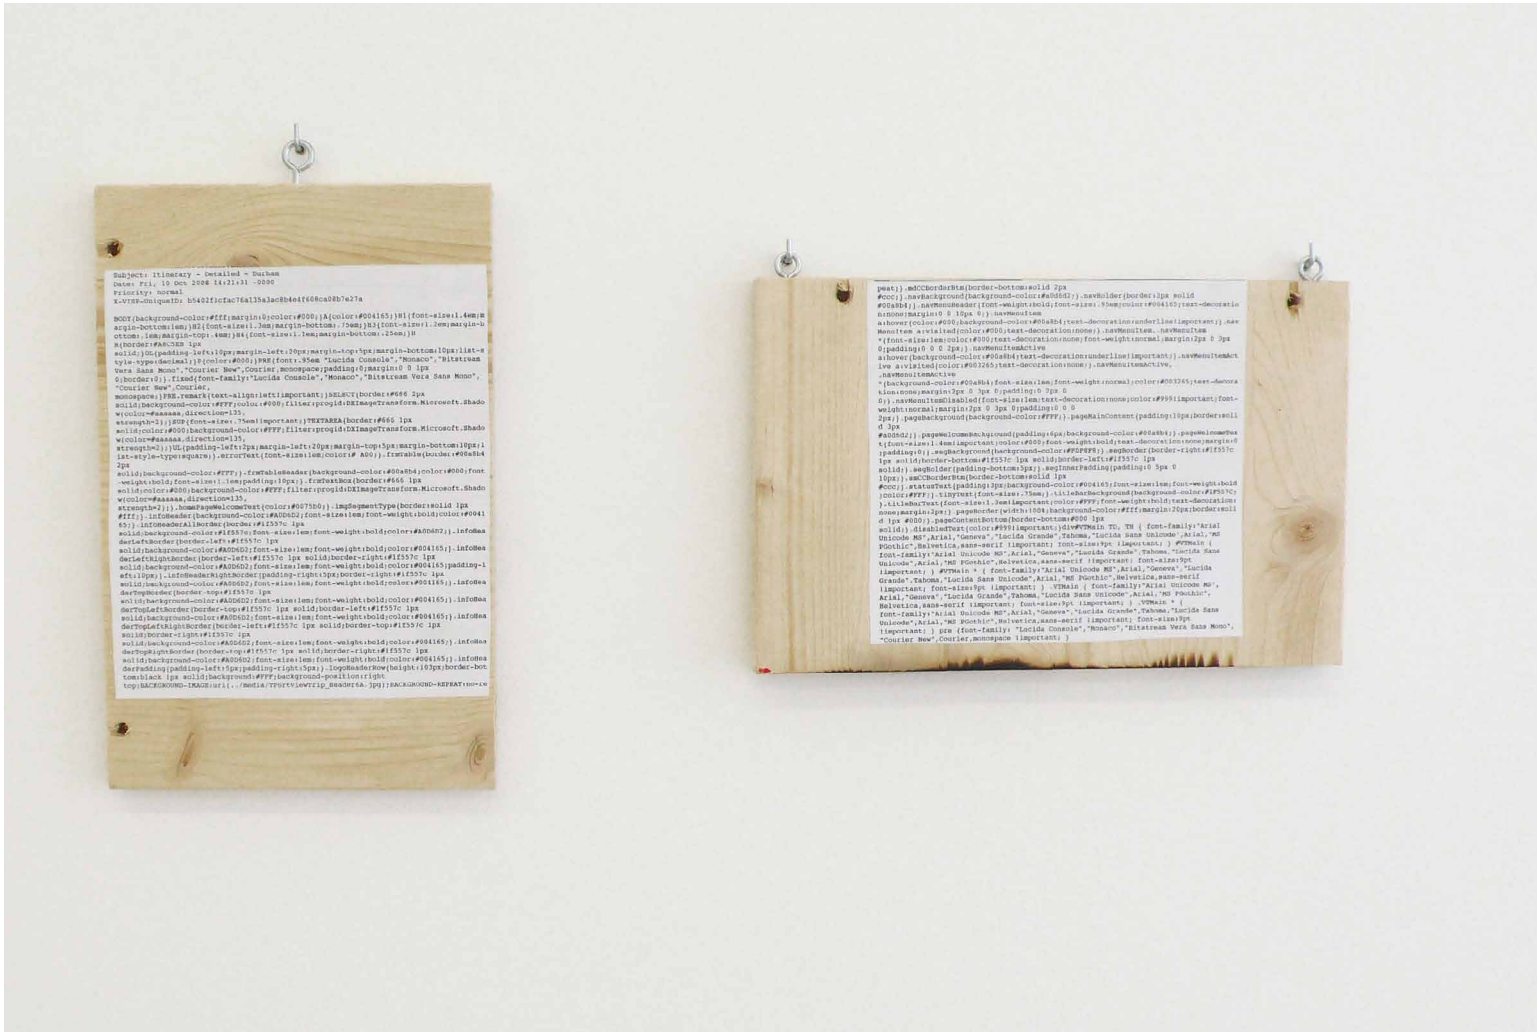 Subject: Itinerary - Detailed - Durham
Date: Fri, 10 Oct 2008 14:21:31 -0000
Priority: normal
BODY{background-color:#fff;margin:0;color:#000;}A{color:#004165}H1{font-size:1.4em;m
argin-bottom:1em;}H2{font-size:1.3em;margin-bottom:.75em;}H3{font-size:1.2em;margin-b
ottom:.1em;margin-top:.4em;}H4{font-size:1.1em;margin-bottom:.25em;}H
R{border:#ABC5EB 1px
solid;}OL{padding-left:10px;margin-left:20px;margin-top:5px;margin-bottom:10px;list-s
tyle-type:decimal;}P{color:#000;}PRE{font:.95em "Lucida Console","Monaco","Bitstream
Vera Sans Mono","Courier New",Courier,monospace;padding:0;margin:0 0 1px
0;border:0;}.fixed{font-family:"Lucida Console","Monaco","Bitstream Vera Sans Mono",
"Courier New",Courier,
monospace;}PRE.remark{text-align:left!important;}SELECT{border:#666 2px
solid;background-color:#FFF;color:#000;filter:progid:DXImageTransform.Microsoft.Shado
w(color=#aaaaaa,direction=135,
strength=2);}SUP{font-size:.75em!important;}TEXTAREA{border:#666 1px
solid;color:#000;background-color:#FFF;filter:progid:DXImageTransform.Microsoft.Shado
w(color=#aaaaaa,direction=135,
strength=2);}UL{padding-left:2px;margin-left:20px;margin-top:5px;margin-bottom:10px;l
ist-style-type:square;}.errorText{font-size:1em;color:# A00;}.frmTable{border:#00a8b4
2px
solid;background-color:#FFF;}.frmTableHeader{background-color:#00a8b4;color:#000;font
-weight:bold;font-size:1.1em;padding:10px;}.frmTextBox{border:#666 1px
solid;color:#000;background-color:#FFF;filter:progid:DXImageTransform.Microsoft.Shado
w(color=#aaaaaa,direction=135,
strength=2);}.homePageWelcomeText{color:#0075b0;}.imgSegmentType{border:solid 1px
#fff;}.infoHeader{background-color:#A0D6D2;font-size:1em;font-weight:bold;color:#0041
65;}.infoHeaderAllBorder{border:#1f557c 1px
solid;background-color:#A0D6D2;font-size:1em;font-weight:bold;color:#004165;}.infoHea
derLeftBorder{border-left:#1f557c 1px
solid;background-color:#A0D6D2;font-size:1em;font-weight:bold;color:#004165;}.infoHea
derLeftRightBorder{border-left:#1f557c 1px solid;border-right:#1f557c 1px
solid;background-color:#A0D6D2;font-size:1em;font-weight:bold;color:#004165;padding-l
eft:10px;}.infoHeaderRightBorder{padding-right:5px;border-right:#1f557c 1px
solid;background-color:#A0D6D2;font-size:1em;font-weight:bold;color:#004165;}.infoHea
derTopBorder{border-top:#1f557c 1px
solid;background-color:#A0D6D2;font-size:1em;font-weight:bold;color:#004165;}.infoHea
derTopLeftBorder{border-top:#1f557c 1px solid;border-left:#1f557c 1px
solid;background-color:#A0D6D2;font-size:1em;font-weight:bold;color:#004165;}.infoHea
derTopLeftRightBorder{border-left:#1f557c 1px solid;border-top:#1f557c 1px
solid;border-right:#1f557c 1px
solid;background-color:#A0D6D2;font-size:1em;font-weight:bold;color:#004165;}.infoHea
derTopRightBorder{border-top:#1f557c 1px solid;border-right:#1f557c 1px
solid;background-color:#A0D6D2;font-size:1em;font-weight:bold;color:#004165;}.infoHea
derPadding{padding-left:5px;padding-right:5px;}.logoHeaderRow{height:103px;border-bot
tom:black 1px solid;background:#FFF;background-position:right
top;BACKGROUND-IMAGE:url(../media/TPortviewTrip_Header6A.jpg);BACKGROUND-REPEAT:no-re
peat;}.mdCCBorderBtm{border-bottom:solid 2px
#ccc;}.navBackground{background-color:#a0d6d2;}.navHolder{border:2px solid
#00a8b4;}.navMenuHeader{font-weight:bold;font-size:.95em;color:#004165;text-decoratio
n:none;margin:0 0 10px 0;}.navMenuItem
a:hover{color:#000;background-color:#00a8b4;text-decoration:underline!important;}.nav
MenuItem a:visited{color:#000;text-decoration:none;}.navMenuItem,.navMenuItem
*{font-size:1em;color:#000;text-decoration:none;font-weight:normal;margin:2px 0 3px
0;padding:0 0 0 2px;}.navMenuItemActive
a:hover{background-color:#00a8b4;text-decoration:underline!important;}.navMenuItemAct
ive a:visited{color:#003265;text-decoration:none;}.navMenuItemActive,
.navMenuItemActive
*{background-color:#00a8b4;font-size:1em;font-weight:normal;color:#003265;text-decora
tion:none;margin:2px 0 3px 0;padding:0 2px 0
0;}.navMenuItemDisabled{font-size:1em;text-decoration:none;color:#999!important;font-
weight:normal;margin:2px 0 3px 0;padding:0 0 0
2px;}.pageBackground{background-color:#FFF;}.pageMainContent{padding:10px;border:soli
d 3px
#a0d6d2;}.pageWelcomeBackground{padding:6px;background-color:#00a8b4;}.pageWelcomeTex
t{font-size:1.4em!important;color:#000;font-weight:bold;text-decoration:none;margin:0
;padding:0;}.segBackground{background-color:#F0F8F8;}.segBorder{border-right:#1f557c
1px solid;border-bottom:#1f557c 1px solid;border-left:#1f557c 1px
solid;}.segHolder{padding-bottom:5px;}.segInnerPadding{padding:0 5px 0
10px;}.smCCBorderBtm{border-bottom:solid 1px
#ccc;}.statusText{padding:3px;background-color:#004165;font-size:1em;font-weight:bold
;color:#FFF;}.tinyText{font-size:.75em;}.titleBarBackground{background-color:#1F557C;
}.titleBarText{font-size:1.3em!important;color:#FFF;font-weight:bold;text-decoration:
none;margin:2px;}.pageBorder{width:100%;background-color:#fff;margin:20px;border:soli
d 1px #000;}.pageContentBottom{border-bottom:#000 1px
solid;}.disabledText{color:#999!important;}div#VTMain TD, TH { font-family:"Arial
Unicode MS",Arial,"Geneva","Lucida Grande",Tahoma,"Lucida Sans Unicode",Arial,"MS
PGothic",Helvetica,sans-serif !important; font-size:9pt !important; } #VTMain {
font-family:"Arial Unicode MS",Arial,"Geneva","Lucida Grande",Tahoma,"Lucida Sans
Unicode",Arial,"MS PGothic",Helvetica,sans-serif !important; font-size:9pt
!important; } #VTMain * { font-family:"Arial Unicode MS",Arial,"Geneva","Lucida
Grande",Tahoma,"Lucida Sans Unicode",Arial,"MS PGothic",Helvetica,sans-serif
!important; font-size:9pt !important; } .VTMain { font-family:"Arial Unicode MS",
Arial,"Geneva","Lucida Grande",Tahoma,"Lucida Sans Unicode",Arial,"MS PGothic",
Helvetica,sans-serif !important; font-size:9pt !important; } .VTMain * {
font-family:"Arial Unicode MS",Arial,"Geneva","Lucida Grande",Tahoma,"Lucida Sans
Unicode",Arial,"MS PGothic",Helvetica,sans-serif !important; font-size:9pt
!important; } pre {font-family: "Lucida Console","Monaco","Bitstream Vera Sans Mono",
"Courier New",Courier,monospace !important; }